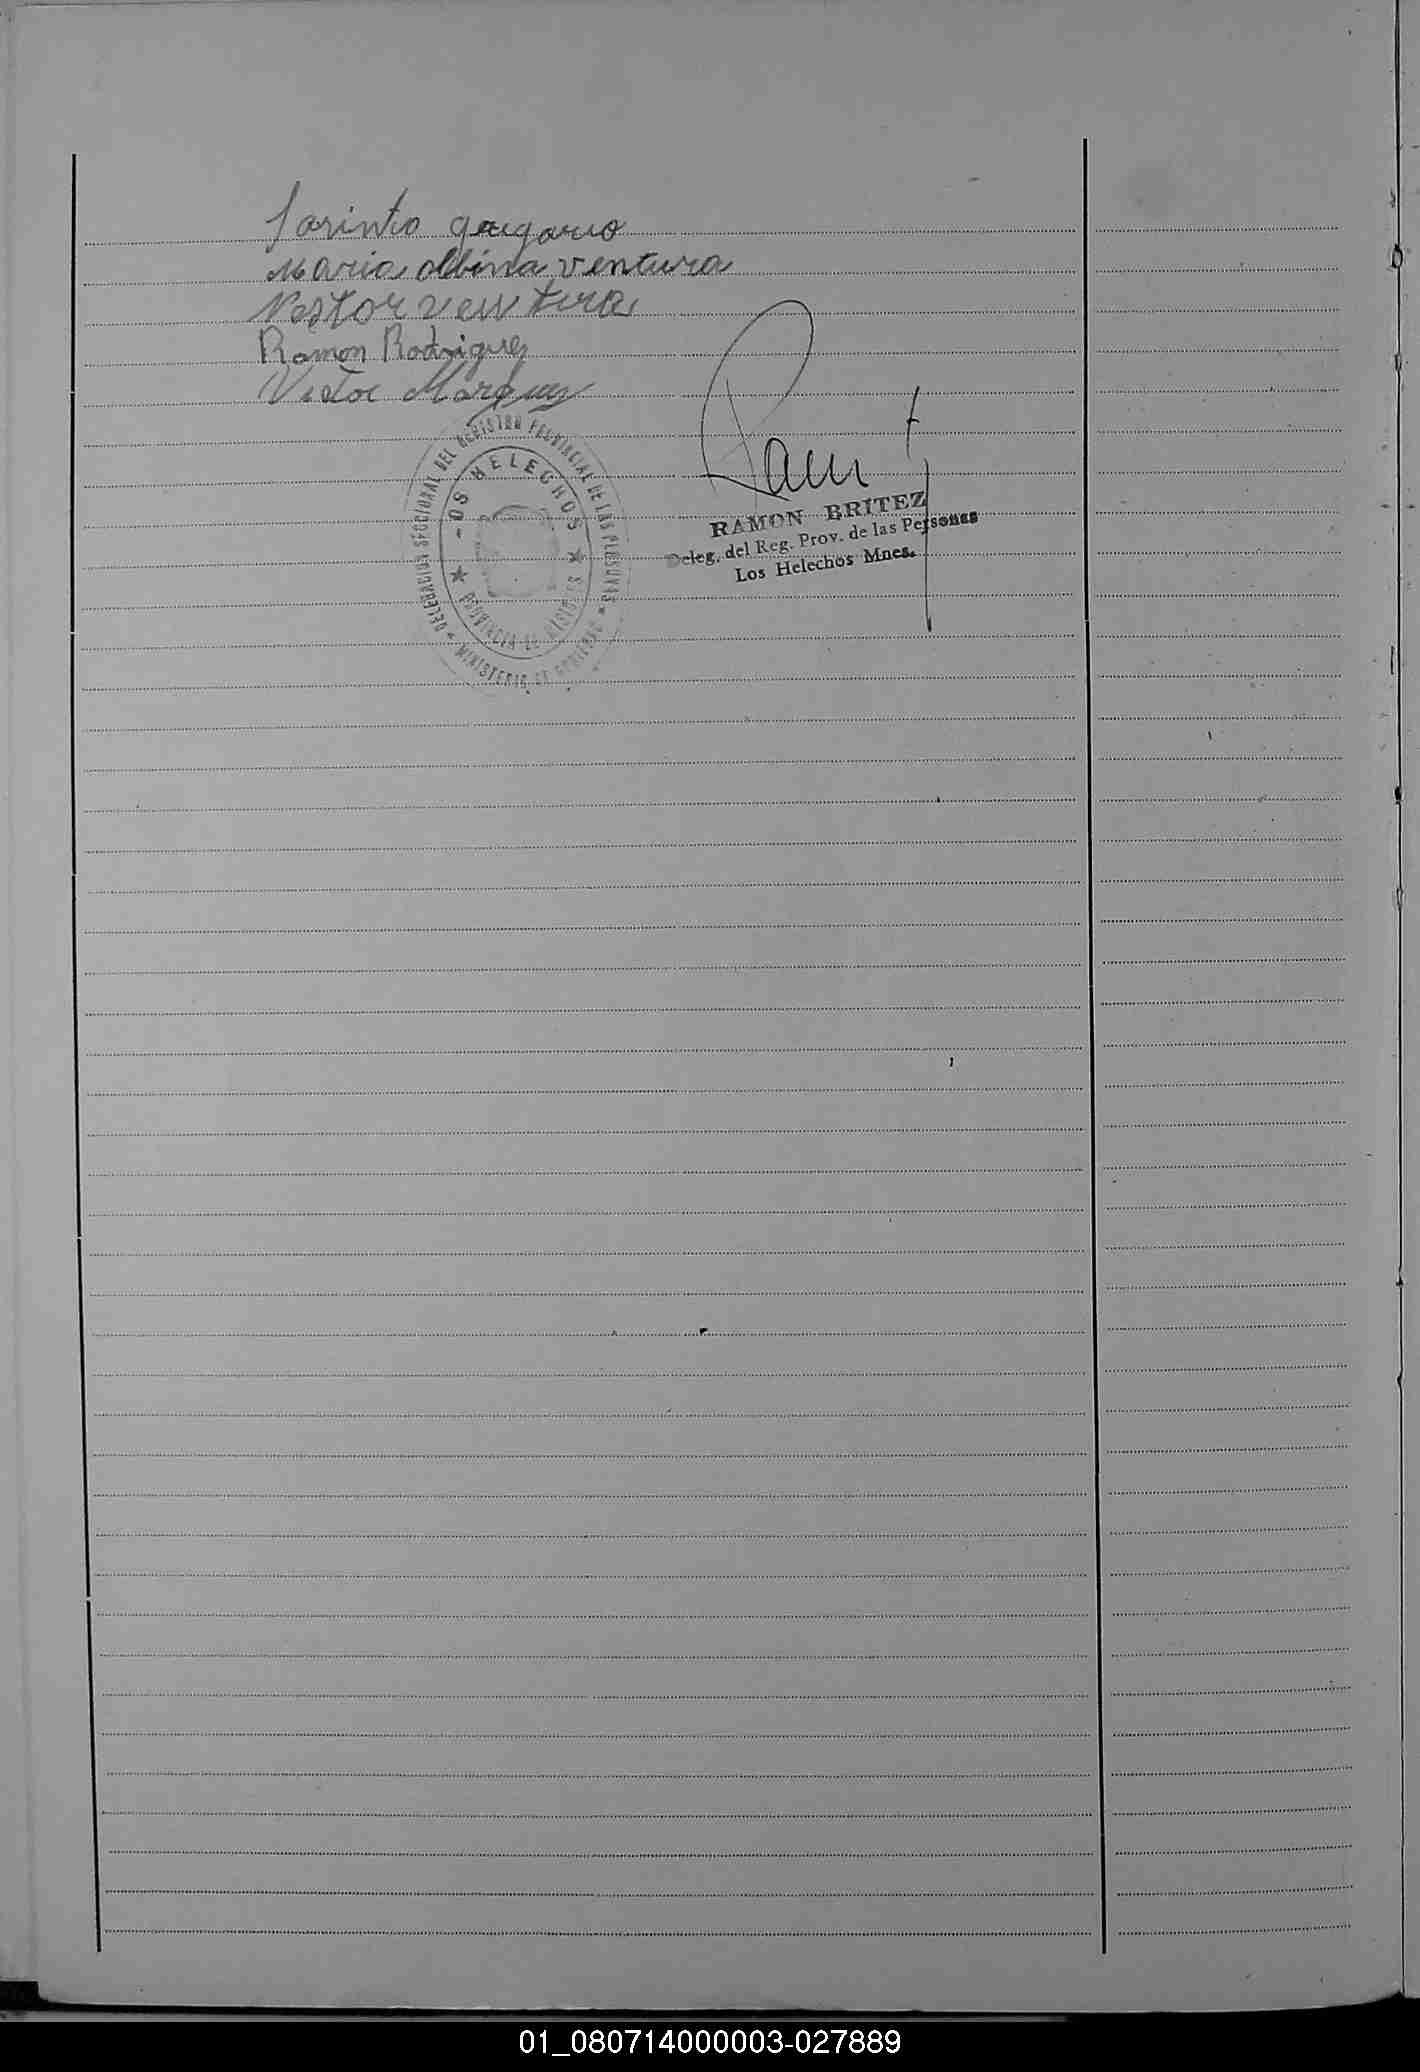 Jasinto gregorio
Maria Albina ventura
Nestor ventura
Ramon Rodriguez
Victor Marquez
DELEGACION SECCIONAL DEL REGISTRO PROVINCIAL DE LAS PERSONAS
LOS HELECHOS
PROVINCIA DE MISIONES
MINISTERIO DE GOBIERNO
RAMON BRITEZ
Deleg. del Reg. Prov. de las Personas
Los Helechos Mnes.
01_080714000003-027889